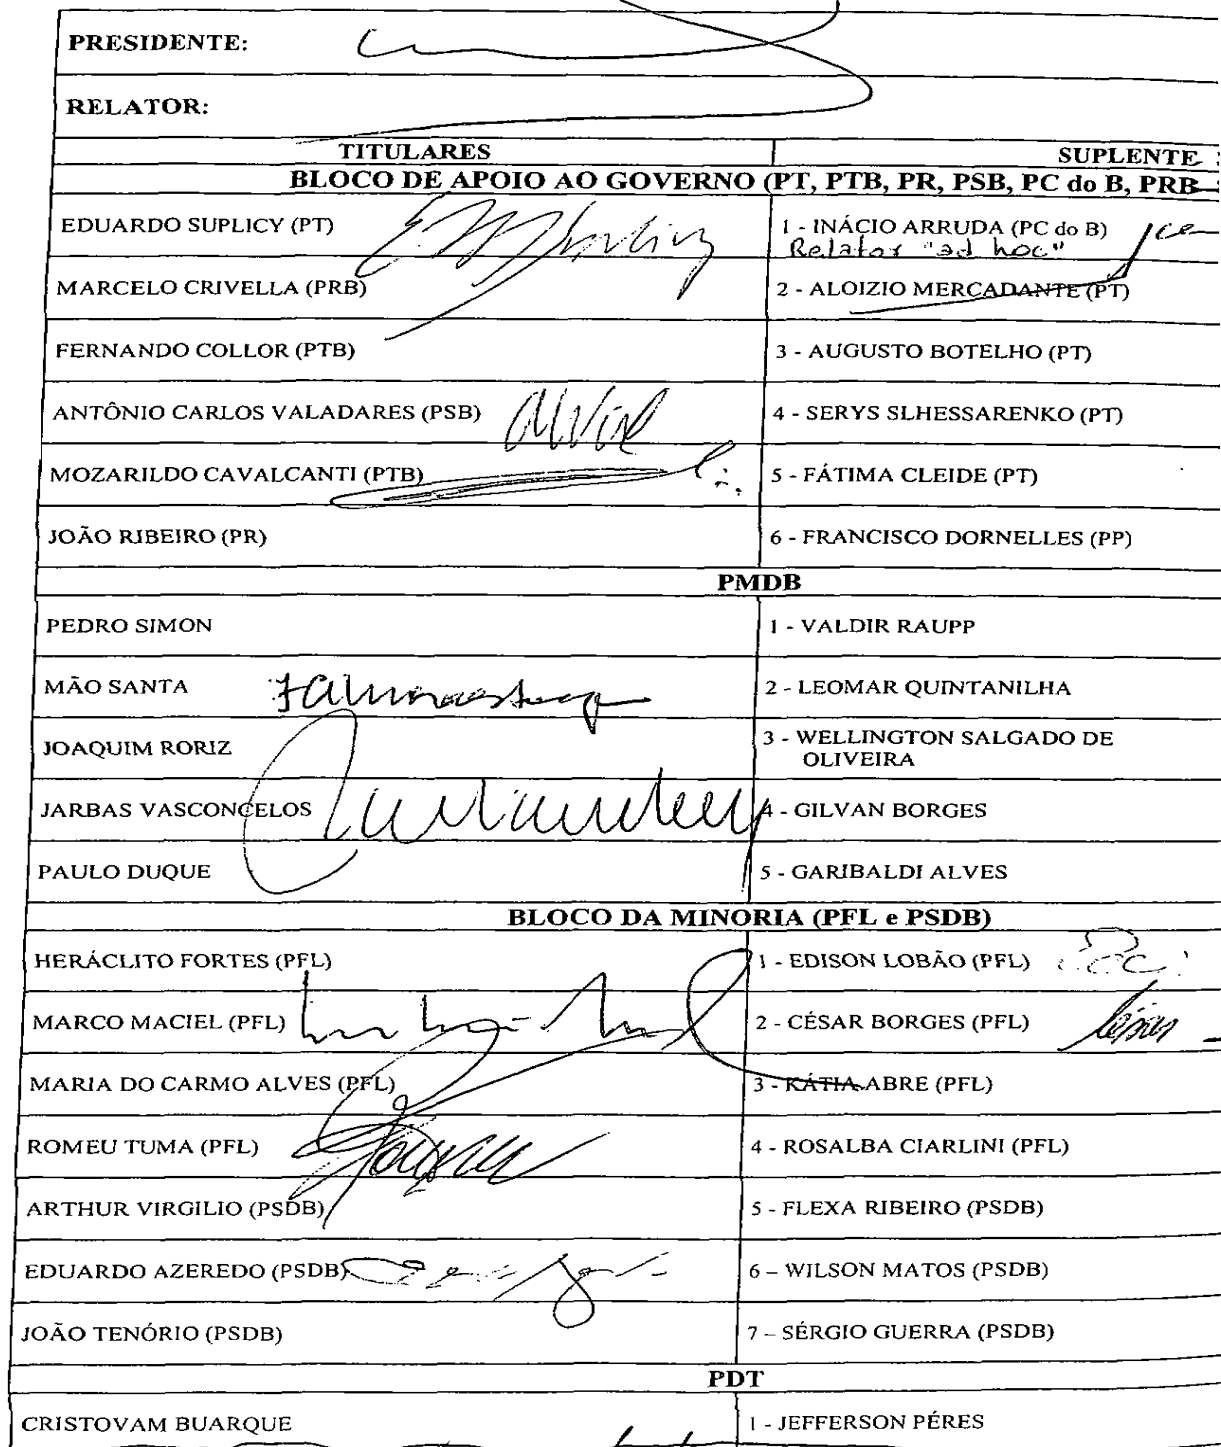 PRESIDENTE:
RELATOR:
TITULARES SUPLENTE
BLOCO DE APOIO AO GOVERNO (PT, PTB, PR, PSB, PC do B, PRB
EDUARDO SUPLICY (PT) 1 - INÁCIO ARRUDA (PC do B)
Relator "ad hoc"
MARCELO CRIVELLA (PRB) 2 - ALOIZIO MERCADANTE (PT)
FERNANDO COLLOR (PTB) 3 - AUGUSTO BOTELHO (PT)
ANTÔNIO CARLOS VALADARES (PSB) 4 - SERYS SLHESSARENKO (PT)
MOZARILDO CAVALCANTI (PTB) 5 - FÁTIMA CLEIDE (PT)
JOÃO RIBEIRO (PR) 6 - FRANCISCO DORNELLES (PP)
PMDB
PEDRO SIMON 1 - VALDIR RAUPP
MÃO SANTA 2 - LEOMAR QUINTANILHA
JOAQUIM RORIZ 3 - WELLINGTON SALGADO DE
OLIVEIRA
JARBAS VASCONCELOS 4 - GILVAN BORGES
PAULO DUQUE 5 - GARIBALDI ALVES
BLOCO DA MINORIA (PFL e PSDB)
HERÁCLITO FORTES (PFL) 1 - EDISON LOBÃO (PFL)
MARCO MACIEL (PFL) 2 - CÉSAR BORGES (PFL)
MARIA DO CARMO ALVES (PFL) 3 - KÁTIA ABRE (PFL)
ROMEU TUMA (PFL) 4 - ROSALBA CIARLINI (PFL)
ARTHUR VIRGILIO (PSDB) 5 - FLEXA RIBEIRO (PSDB)
EDUARDO AZEREDO (PSDB) 6 – WILSON MATOS (PSDB)
JOÃO TENÓRIO (PSDB) 7 – SÉRGIO GUERRA (PSDB)
PDT
CRISTOVAM BUARQUE 1 - JEFFERSON PÉRES